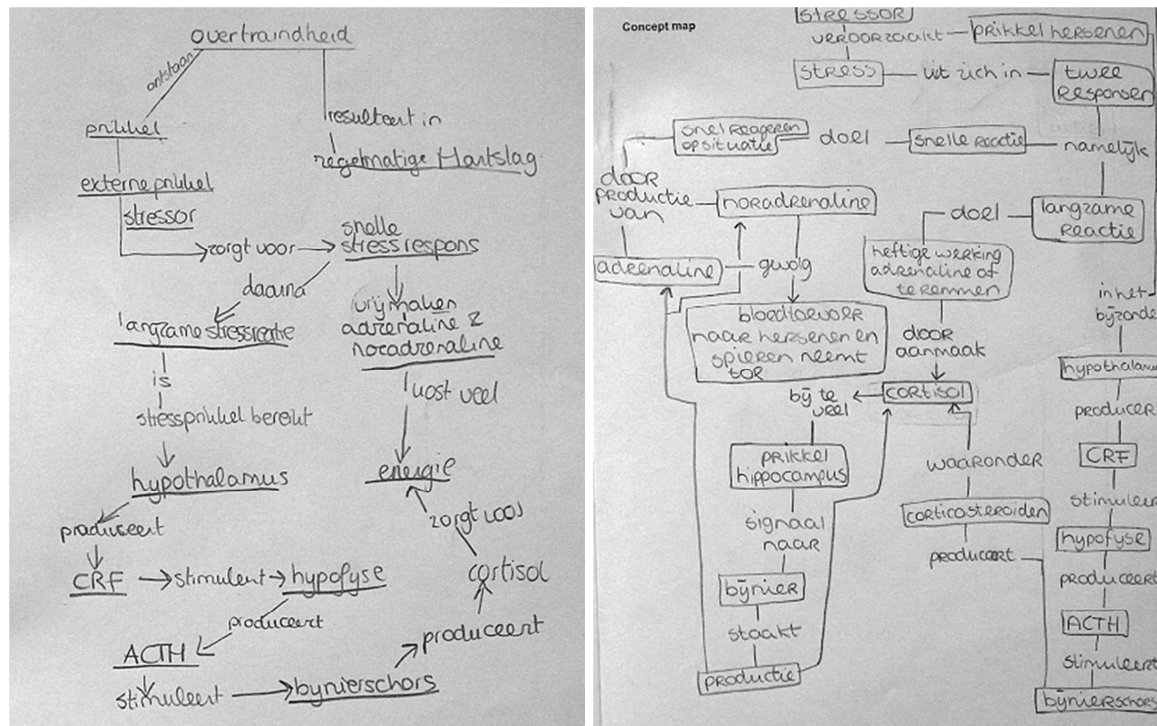 overtraindheid
ontstaan
prikkel
resulteert in
regelmatige Hartslag
externe prikkel
stressor
zorgt voor
snelle
stressrespons
daarna
langzame stressreatie
vrijmaken
adrenaline &
noradrenaline
is
kost veel
stressprikkel bereikt
hypothalamus
energie
produceert
zorgt voor
CRF
stimuleert
hypofyse
cortisol
produceert
produceert
ACTH
stimuleert
bynierschors
Concept map
STRESSOR
VEROORZAAKT
PRIKKEL HERSENEN
STRESS
uit zich in
TWEE
RESPONSEN
SNEL REAGEREN
OP SITUATIE
doel
SNELLE REACTIE
namelijk
DOOR
PRODUCTIE
VAN
NORADRENALINE
doel
LANGZAME
REACTIE
adrenaline
gevolg
HEFTIGE WERKING
ADRENALINE AF
TE REMMEN
in het
bijzonde
bloedtoevoer
naar hersenen en
spieren neemt
toe
DOOR
aanmaak
hypothalamu
bij te
veel
CORTISOL
producer
PRIKKEL
hippocampus
waaronder
CRF
signaal
naar
corticosteroiden
stimuleer
hypofyse
produceert
bijnier
produceert
staakt
ACTH
stimuleert
productie
bijnierschors